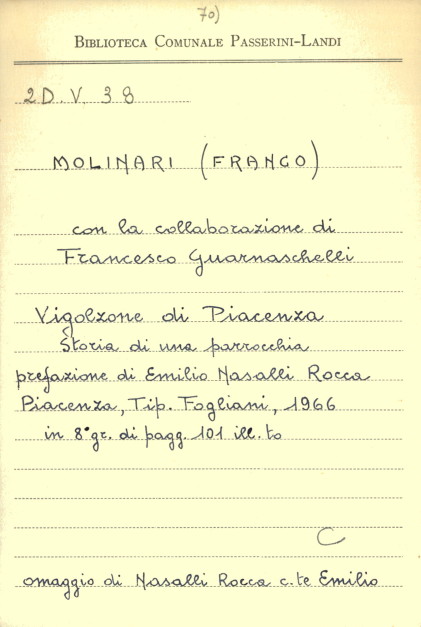 70)
BIBLIOTECA COMUNALE PASSERINI-LANDI
2D. V. 38
MOLINARI (FRANCO)
con la collaborazione di
Francesco Guarnaschelli
Vigolzone di Piacenza
Storia di una parrocchia
prefazione di Emilio Nasalli Rocca
Piacenza, Tip. Fogliani, 1966
in 8° gr. di pagg. 101 ill.to
C
omaggio di Nasalli Rocca c.te Emilio